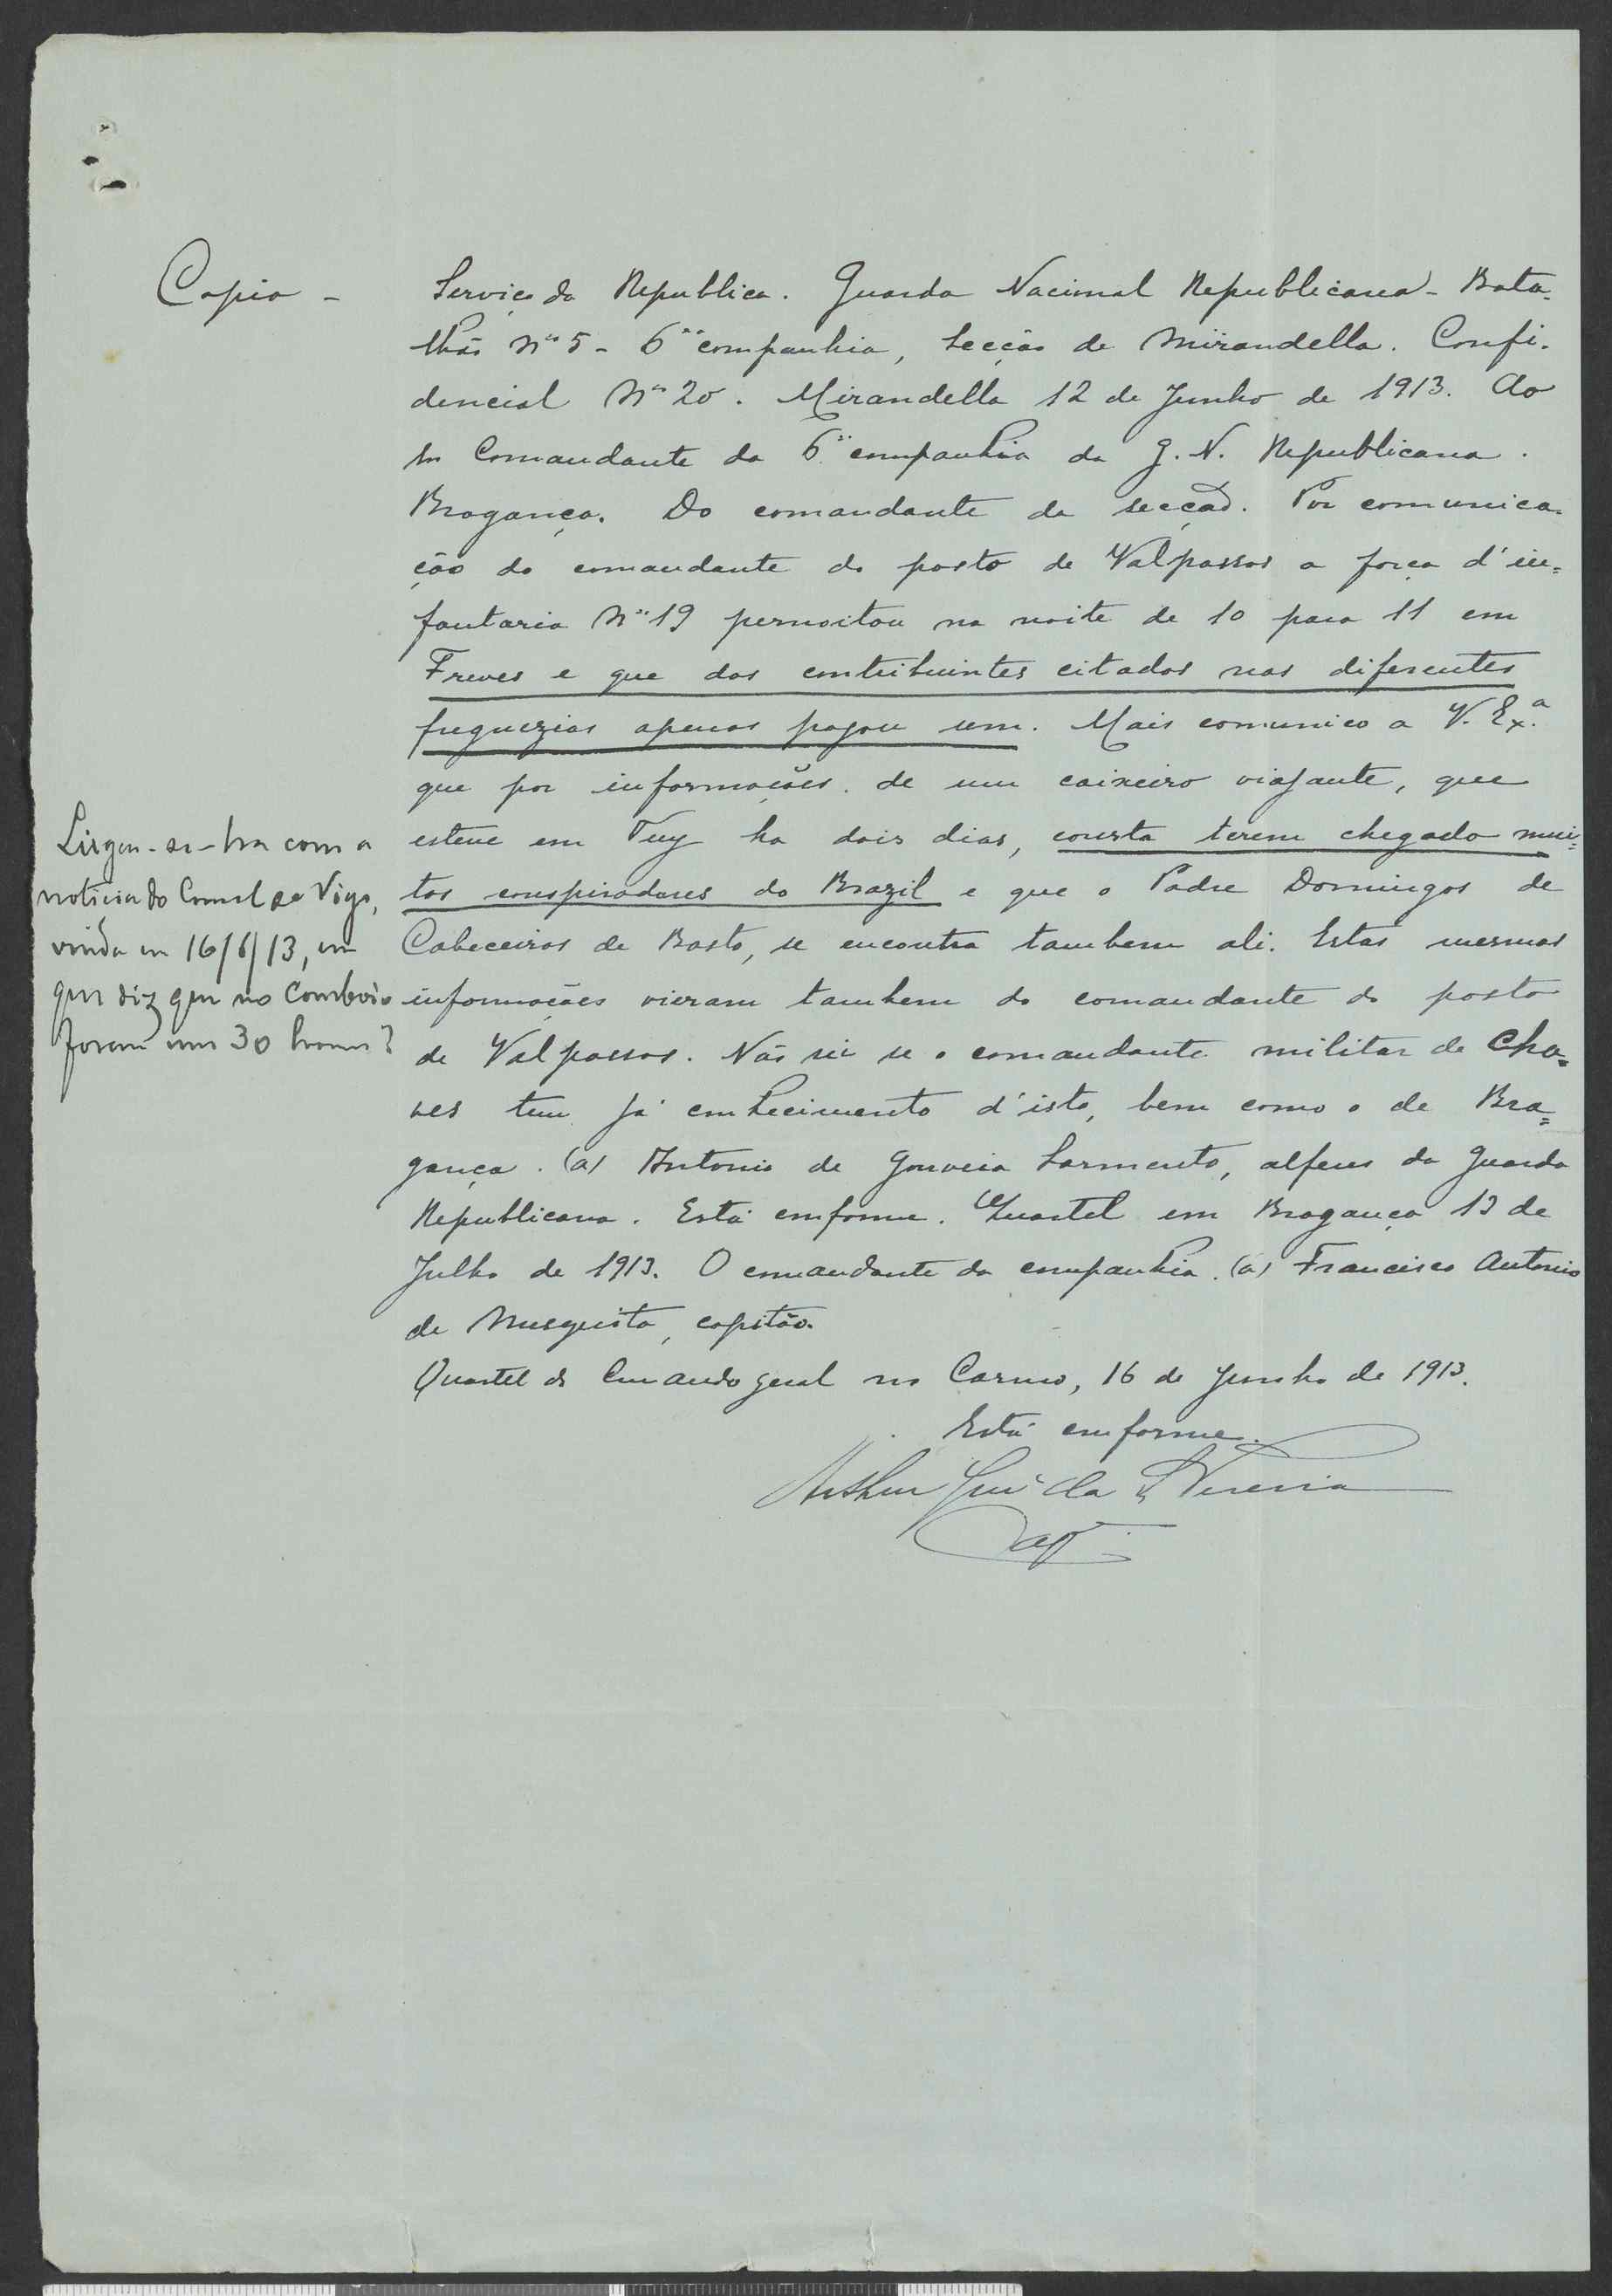 Copia -
Serviço da Republica. Guarda Nacional Republicana - Bata-
lhão Nº 5 - 6ª companhia, Secção de Mirandella. Confi-
dencial Nº 20. Mirandella 12 de Junho de 1913. Ao
Sr Comandante da 6ª companhia da G. N. Republicana.
Bragança. Do comandante da secção. Por comunica-
ção do comandante do posto de Valpassos a força d'in=
fantaria Nº 19 pernoitou na noite de 10 para 11 em
e que dos contribuintes citados nas diferentes
freguezias apenas pagou um. Mais comunico a V. Exª
que por informações de um caixeiro viajante, que
esteve em Tuy ha dois dias, consta terem chegado mui=
tos conspiradores do Brazil e que o Padre Domingos de
Cabeceiras de Basto, se encontra tambem ali. Estas mesmas
informações vieram tambem do comandante do posto
de Valpassos. Não sei se o comandante militar de Cha=
ves tem já conhecimento d'isto, bem como o de Bra=
gança. (a) Antonio de Gouveia Sarmento, alferes da Guarda
Republicana. Está conforme. Quartel em Bragança 13 de
Julho de 1913. O comandante da companhia. (a) Francisco Antonio
de Musquita, capitão.
Quartel do Comando geral no Carmo, 16 de Junho de 1913.
Está conforme.
Arthur da
Cap.
com a
noticia do Consul de Vigo,
vinda em 16/6/13, em
que diz que no comboio
foram uns 30 homens?